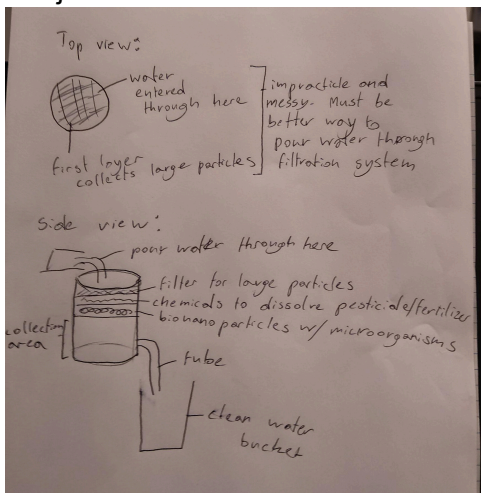 Top view:
water
entered
through here
first layer
collects large particles
impracticle and
messy. Must be
better way to
pour water through
filtration system
Side view:
pour water through here
filter for large particles
chemicals to dissolve pesticide/fertilizer
bionanoparticles w/ microorganisms
collection
area
tube
clean water
bucket